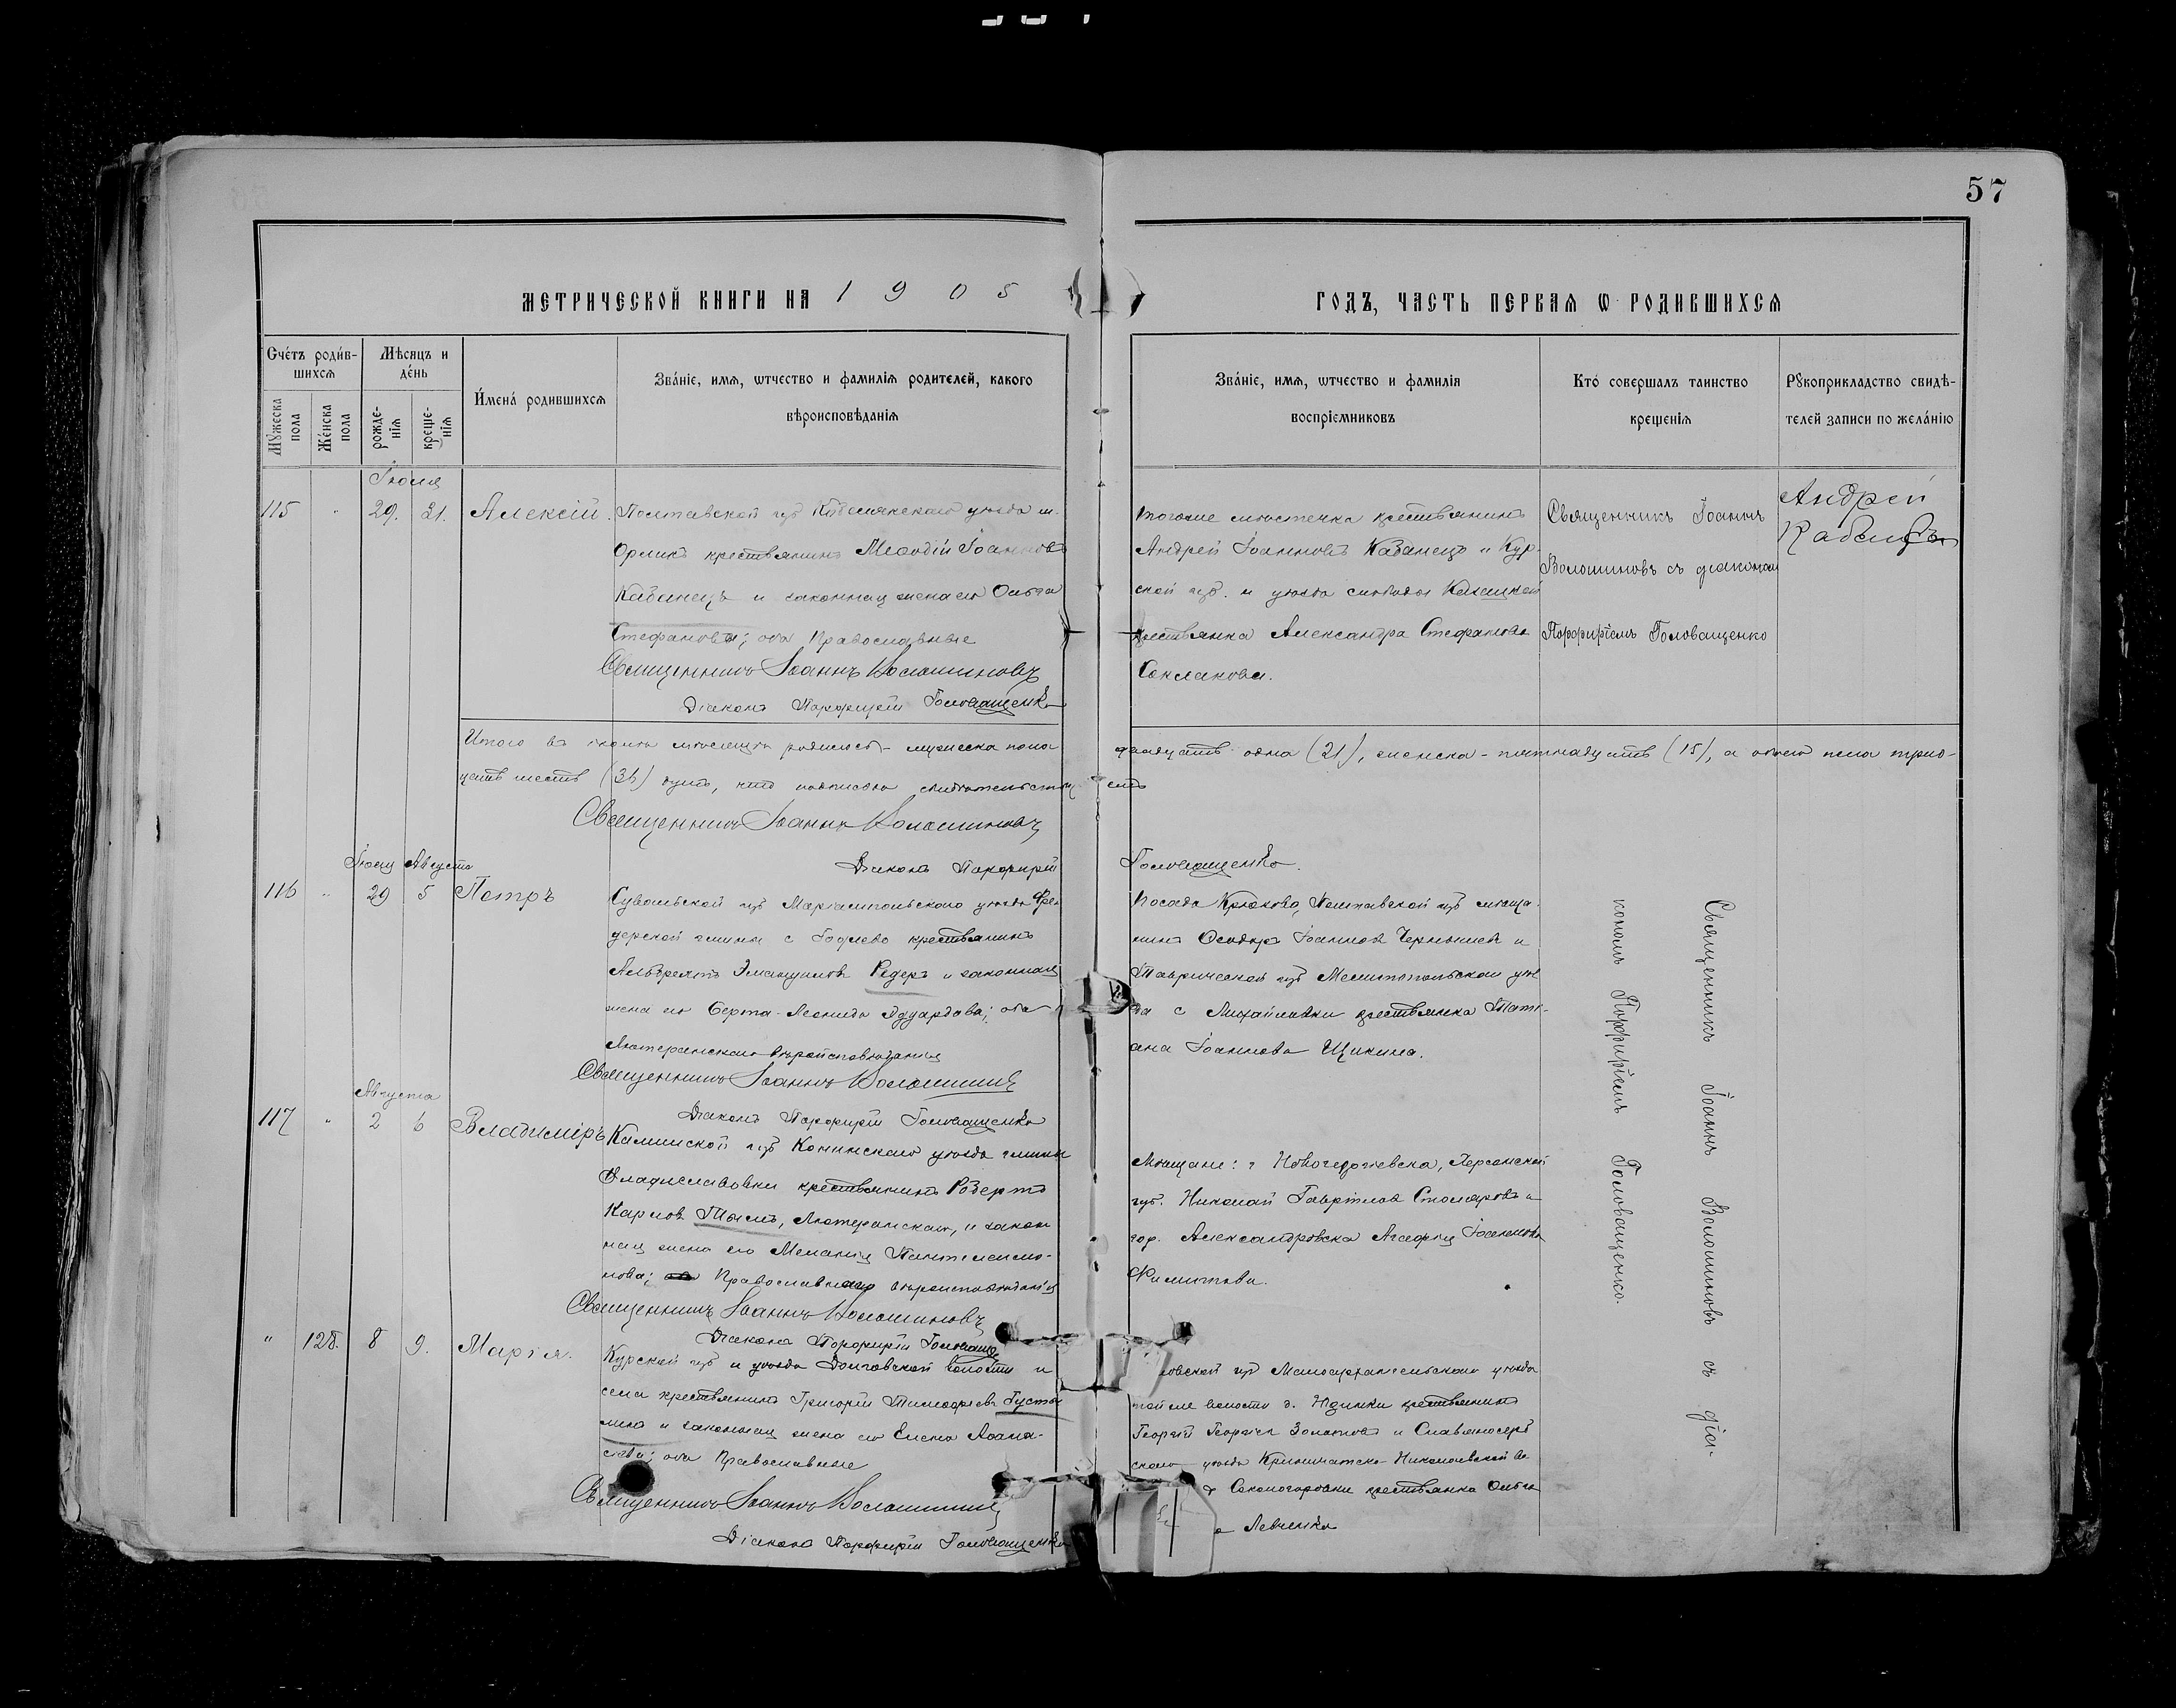 57
МЕТРИЧЕСКОЙ КНИГИ НА 1905
ГОДЪ, ЧАСТЬ ПЕРВАЯ Ѡ РОДИВШИХСЯ
Счетъ родив-
шихся
Мужеска пола
Женска пола
Мѣсяцъ и
день
рожде-
нія
креще-
нія
Имена родившихся
Званіе, имя, ѡтчество и фамилія родителей, какого
вѣроисповѣданія
Званіе, имя, ѡтчество и фамилія
воспріемниковъ
Кто совершалъ таинство
крещенія
Рукоприкладство свидѣ-
телей записи по желанію
Іюля
115 " 29. 31. Алексій.
Полтавской губ Кобелякскаго уѣзда м.
Орликъ крестьянинъ Меѳодій Іоанновъ
Кабанецъ и законная жена его Ольга
Стефанова; оба Православные
Священникъ Іоаннъ Волошиновъ
Діаконъ Порфирій Головащенко
тогоже мѣстечка крестьянинъ
Андрей Іоанновъ Кабанецъ и Кур-
ской губ. и уѣзда слободы Казацкой
крестьянка Александра Стефанова
Соклакова.
Священникъ Іоаннъ
Волошиновъ съ діакономъ
Порфиріемъ Головащенко
Андрей
Кабанецъ
Итого въ іюлѣ мѣсяцѣ родилось - мужеска пола
двадцать одна (21), женска - пятнадцать (15), а обоего пола трид-
цать шесть (36) душъ, что подписомъ свидѣтельствуемъ
Священникъ Іоаннъ Волошиновъ
Діаконъ Порфирій Головащенко.
Іюля Августа
116 " 29 5 Петръ
Сувалкской губ Маріампольскаго уѣзда Фре
дерской гмины с Годлево крестьянинъ
Альбрехтъ Эмануиловъ Редеръ и законная
жена его Берта-Леонида Эдуардова; оба
Лютеранскаго вѣроисповѣданія
Священникъ Іоаннъ Волошиновъ
Діаконъ Порфирій Головащенко
Посада Крюкова, Полтавской губ мѣща-
нинъ Ѳеодоръ Іоанновъ Чернышевъ и
Таврической губ Мелитопольскаго уѣз
да с Михайловки крестьянка Тати-
ана Іоаннова Щикина.
Священникъ Іоаннъ Волошиновъ съ діа-
кономъ Порфиріемъ Головащенко.
Августа
117 " 2 6 Владиміръ
Калишской губ Конинскаго уѣзда гмины
Владиславовки крестьянинъ Робертъ
Карловъ Тымъ, Лютеранскаго, и закон
ная жена его Меланія Пантелеимо-
нова; Православнаго вѣроисповѣданія
Священникъ Іоаннъ Волошиновъ
Діаконъ Порфирій Головащ
Мѣщане: г Новогеоргіевска, Херсонской
губ. Николай Гавріиловъ Столяровъ и
гор. Александровска Агафія Іоаннова
Филиппова.
" 128. 8 9. Марія.
Курской губ и уѣзда Долговской волости и
села крестьянинъ Григорій Тимофѣевъ Густы
и законная жена его Елена Аѳана-
сіева; оба Православные
Священникъ Іоаннъ Волошиновъ
Діаконъ Порфирій Головащенко
ловской губ Малоархангельскаго уѣзда
той же волости д. Юдинки крестьянинъ
Георгій Георгіевъ Золотовъ и Славяносерб
скаго уѣзда Криничанско-Николаевской во
Сокологоровки крестьянка Ольга
а Левченко